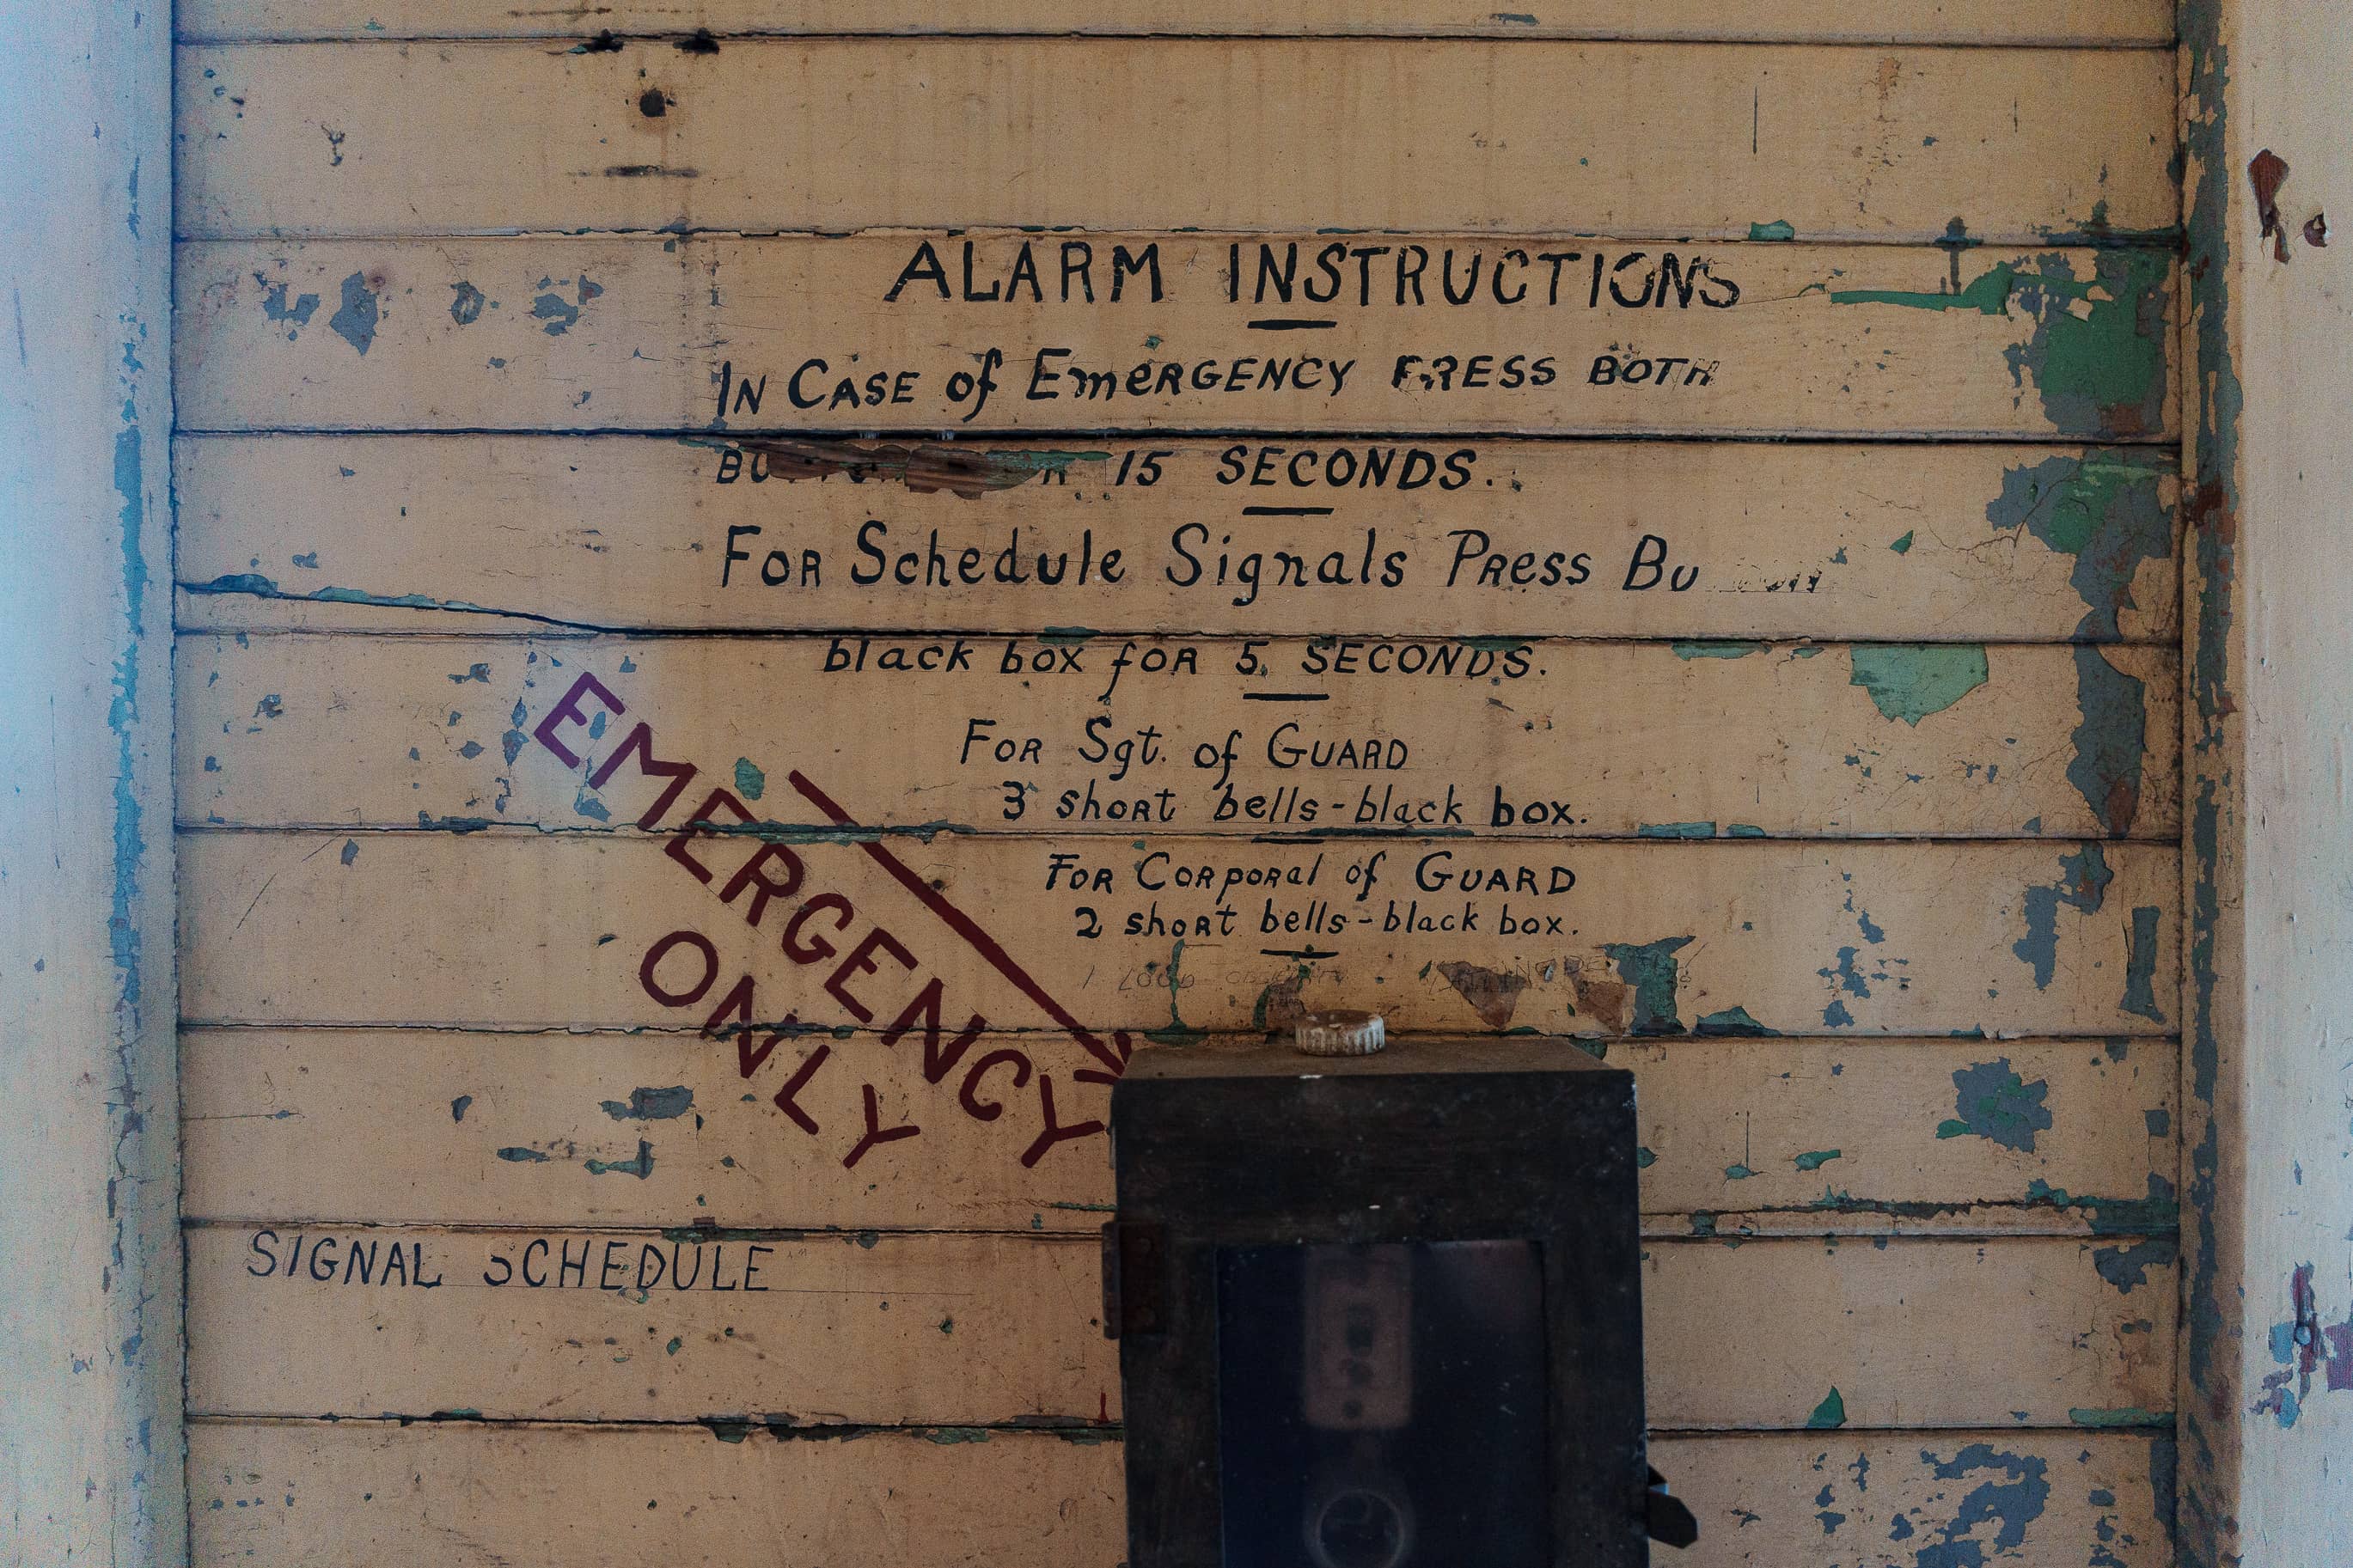 ALARM INSTRUCTIONS
IN CASE of EmERGENCY PRESS BOTH
15 SECONDS.
FOR Schedule Signals PRess
black box foR 5 SECONDS.
FOR Sgt. of GUARD
3 shoRt bells-black box.
FOR CoRpoRal of GUARD
2 shoRt bells-black box.
EMERGENCY
ONLY
SIGNAL SCHEDULE